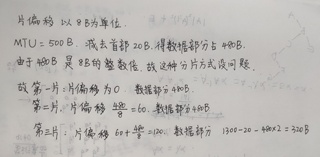 片偏移 以 8B为单位.
MTU = 500B. 减去首部 20B. 得数据部分占 480B.
由于 480B 是 8B的整数倍. 故这种分片方式没问题.
故 第一片: 片偏移为 0. 数据部分 480B.
第二片: 片偏移 480/8 = 60. 数据部分 480B
第三片: 片偏移 60+480/8=120. 数据部分 1300-20-480×2=320B